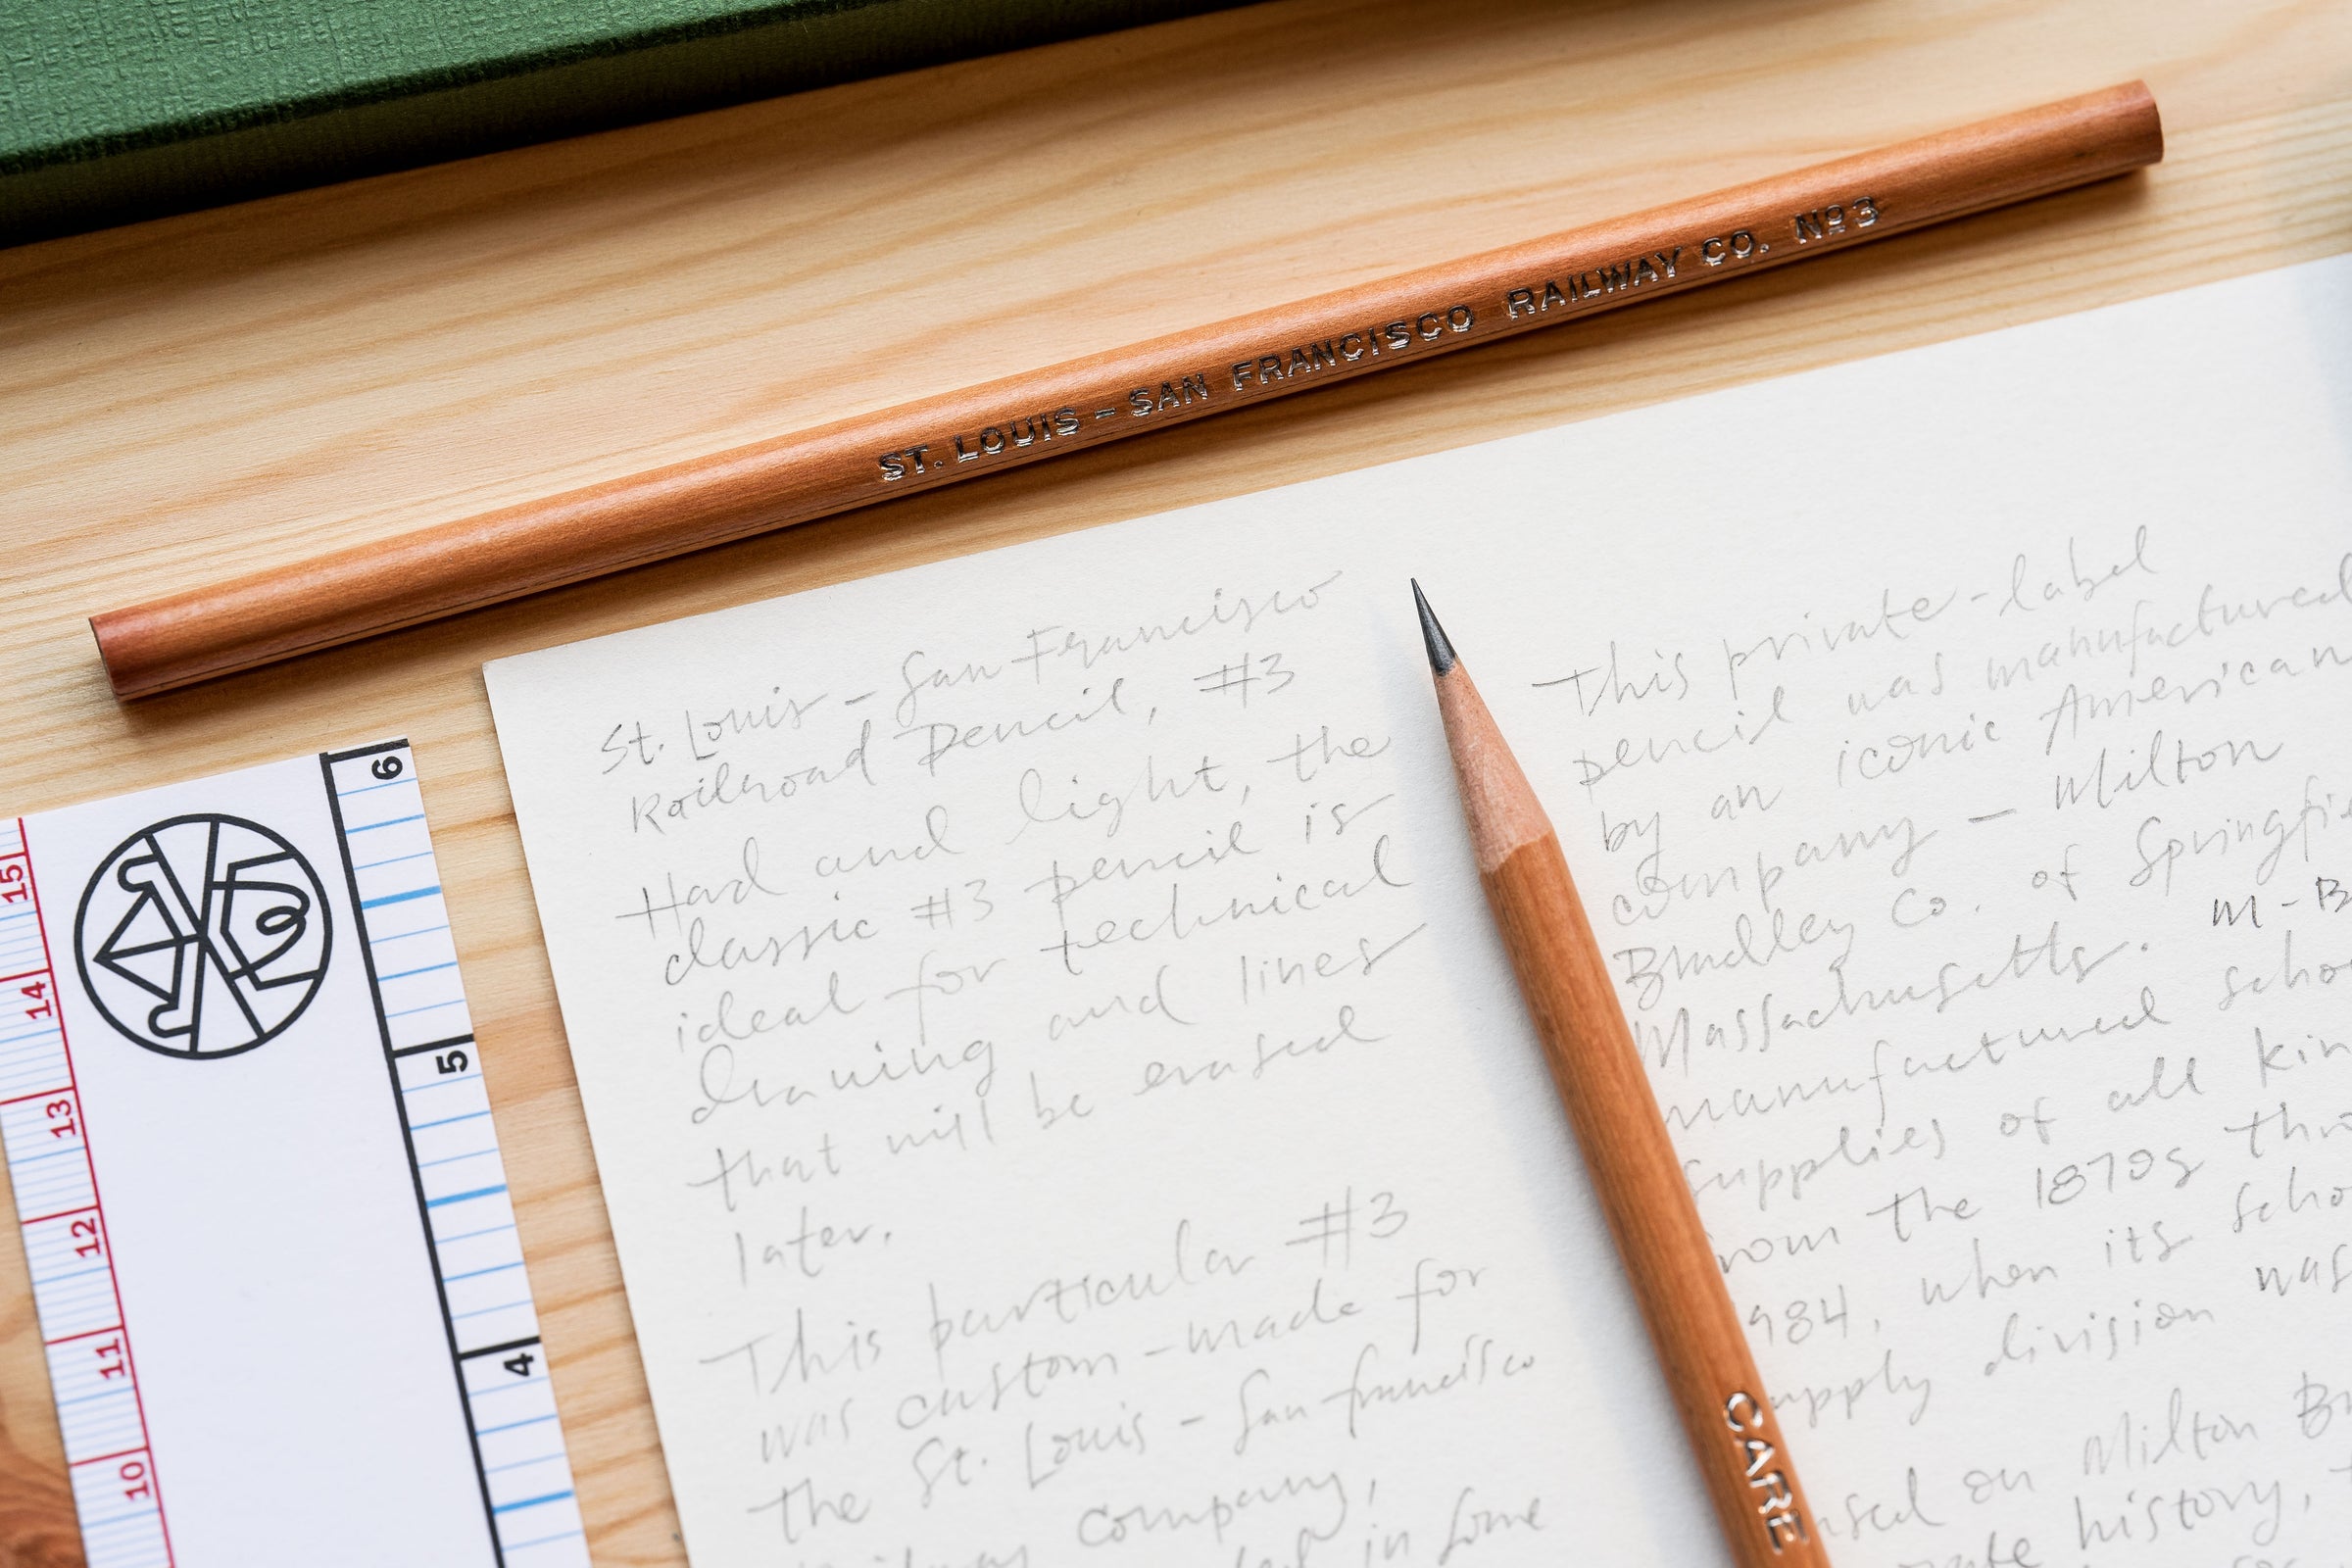 ST. LOUIS - SAN FRANCISCO RAILWAY CO. Nº 3
St. Louis - San Francisco
Railroad Pencil, #3
Hard and light, the
classic #3 pencil is
ideal for technical
drawing and lines
that will be erased
later.
This particular #3
was custom-made for
the St. Louis - San Francisco
Company,
in some
This private-label
pencil was manufactured
by an iconic American
company - Milton
Bradley Co. of
Massachusetts. M-B
manufactured
supplies of all
the 1870s
when its
division was
on Milton
history,
CARE
15
14
13
12
11
10
6
5
4